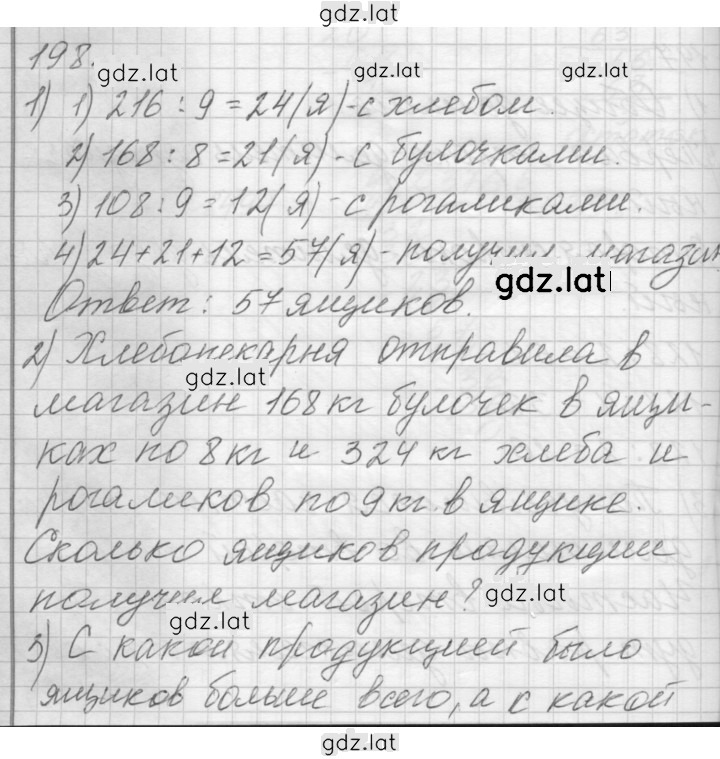 gdz.lat
198.
gdz.lat
gdz.lat
1) 1) 216 : 9 = 24(я) - с хлебом.
2) 168 : 8 = 21(я) - с булочками.
3) 108 : 9 = 12(я) - с рогаликами.
4) 24+21+12 = 57(я) - получил магазин
gdz.lat
Ответ: 57 ящиков.
2) Хлебопекарня отправила в
gdz.lat
магазин 168 кг булочек в ящи-
ках по 8 кг и 324 кг хлеба и
рогаликов по 9 кг в ящике.
Сколько ящиков продукции
получил магазин?
gdz.lat
gdz.lat
3) С какой продукцией было
ящиков больше всего, а с какой
gdz.lat